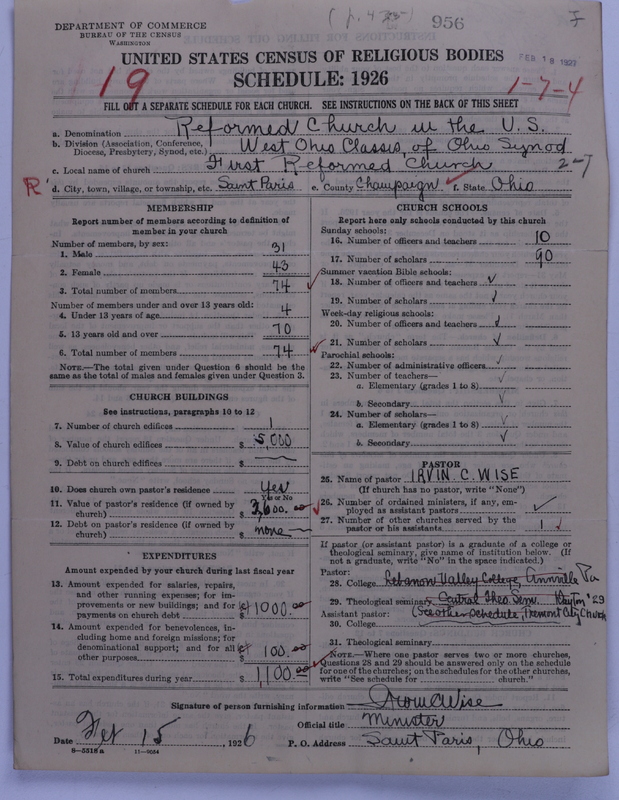 DEPARTMENT OF COMMERCE
BUREAU OF THE CENSUS
WASHINGTON
956
UNITED STATES CENSUS OF RELIGIOUS BODIES
FEB 18 1927
SCHEDULE: 1926
19
1-7-4
FILL OUT A SEPARATE SCHEDULE FOR EACH CHURCH. SEE INSTRUCTIONS ON THE BACK OF THIS SHEET
a. Denomination Reformed Church in the U.S.
b. Division (Association, Conference, Diocese, Presbytery, Synod, etc.) West Ohio Classis, of Ohio Synod
c. Local name of church First Reformed Church 2-7
R d. City, town, village, or township, etc. Saint Paris e. County Champaign f. State Ohio
MEMBERSHIP
Report number of members according to definition of
member in your church
Number of members, by sex:
1. Male 31
2. Female 43
3. Total number of members 74
Number of members under and over 13 years old:
4. Under 13 years of age 4
5. 13 years old and over 70
6. Total number of members 74
NOTE.—The total given under Question 6 should be the
same as the total of males and females given under Question 3.
CHURCH BUILDINGS
See instructions, paragraphs 10 to 12
7. Number of church edifices 1
8. Value of church edifices $ 5,000
9. Debt on church edifices $
10. Does church own pastor's residence Yes
Yes or No
11. Value of pastor's residence (if owned by
church) $
12. Debt on pastor's residence (if owned by
church) $ none
EXPENDITURES
Amount expended by your church during last fiscal year
13. Amount expended for salaries, repairs,
and other running expenses; for im-
provements or new buildings; and for
payments on church debt $ 1000.00
14. Amount expended for benevolences, in-
cluding home and foreign missions; for
denominational support; and for all
other purposes $ 100.00
15. Total expenditures during year $ 1100.00
CHURCH SCHOOLS
Report here only schools conducted by this church
Sunday schools:
16. Number of officers and teachers 10
17. Number of scholars 90
Summer vacation Bible schools:
18. Number of officers and teachers ✓
19. Number of scholars ✓
Week-day religious schools:
20. Number of officers and teachers ✓
21. Number of scholars ✓
Parochial schools:
22. Number of administrative officers ✓
23. Number of teachers—
a. Elementary (grades 1 to 8) ✓
b. Secondary ✓
24. Number of scholars—
a. Elementary (grades 1 to 8) ✓
b. Secondary ✓
PASTOR
25. Name of pastor IRVIN C. WISE
(If church has no pastor, write "None")
26. Number of ordained ministers, if any, em-
ployed as assistant pastors ✓
27. Number of other churches served by the
pastor or his assistants 1
If pastor (or assistant pastor) is a graduate of a college or
theological seminary, give name of institution below. (If
not a graduate, write "No" in the space indicated.)
Pastor:
28. College Lebanon Valley College, Annville Pa
29. Theological seminary Central Theo Sem. Dayton '23
Assistant pastor: (See other schedule, Tremont City Church
30. College
31. Theological seminary
NOTE.—Where one pastor serves two or more churches,
Questions 28 and 29 should be answered only on the schedule
for one of the churches; on the schedules for the other churches,
write "See schedule for church."
Signature of person furnishing information Wise
Official title Minister
Date 15, 1926 P. O. Address Saint Paris, Ohio
8—5518a 11—9034